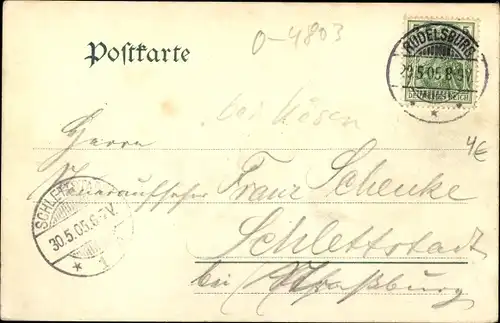 Postkarte
0-4803
5 5
DEUTSCHES REICH
RUDELSBURG
29.5.05.8-9V.
bei Kösen
4€
Herrn
Steueraufseher Franz Schenke
SCHLETTSTADT
30.5.05.6-7V.
* 1
Schlettstadt
bei Straßburg